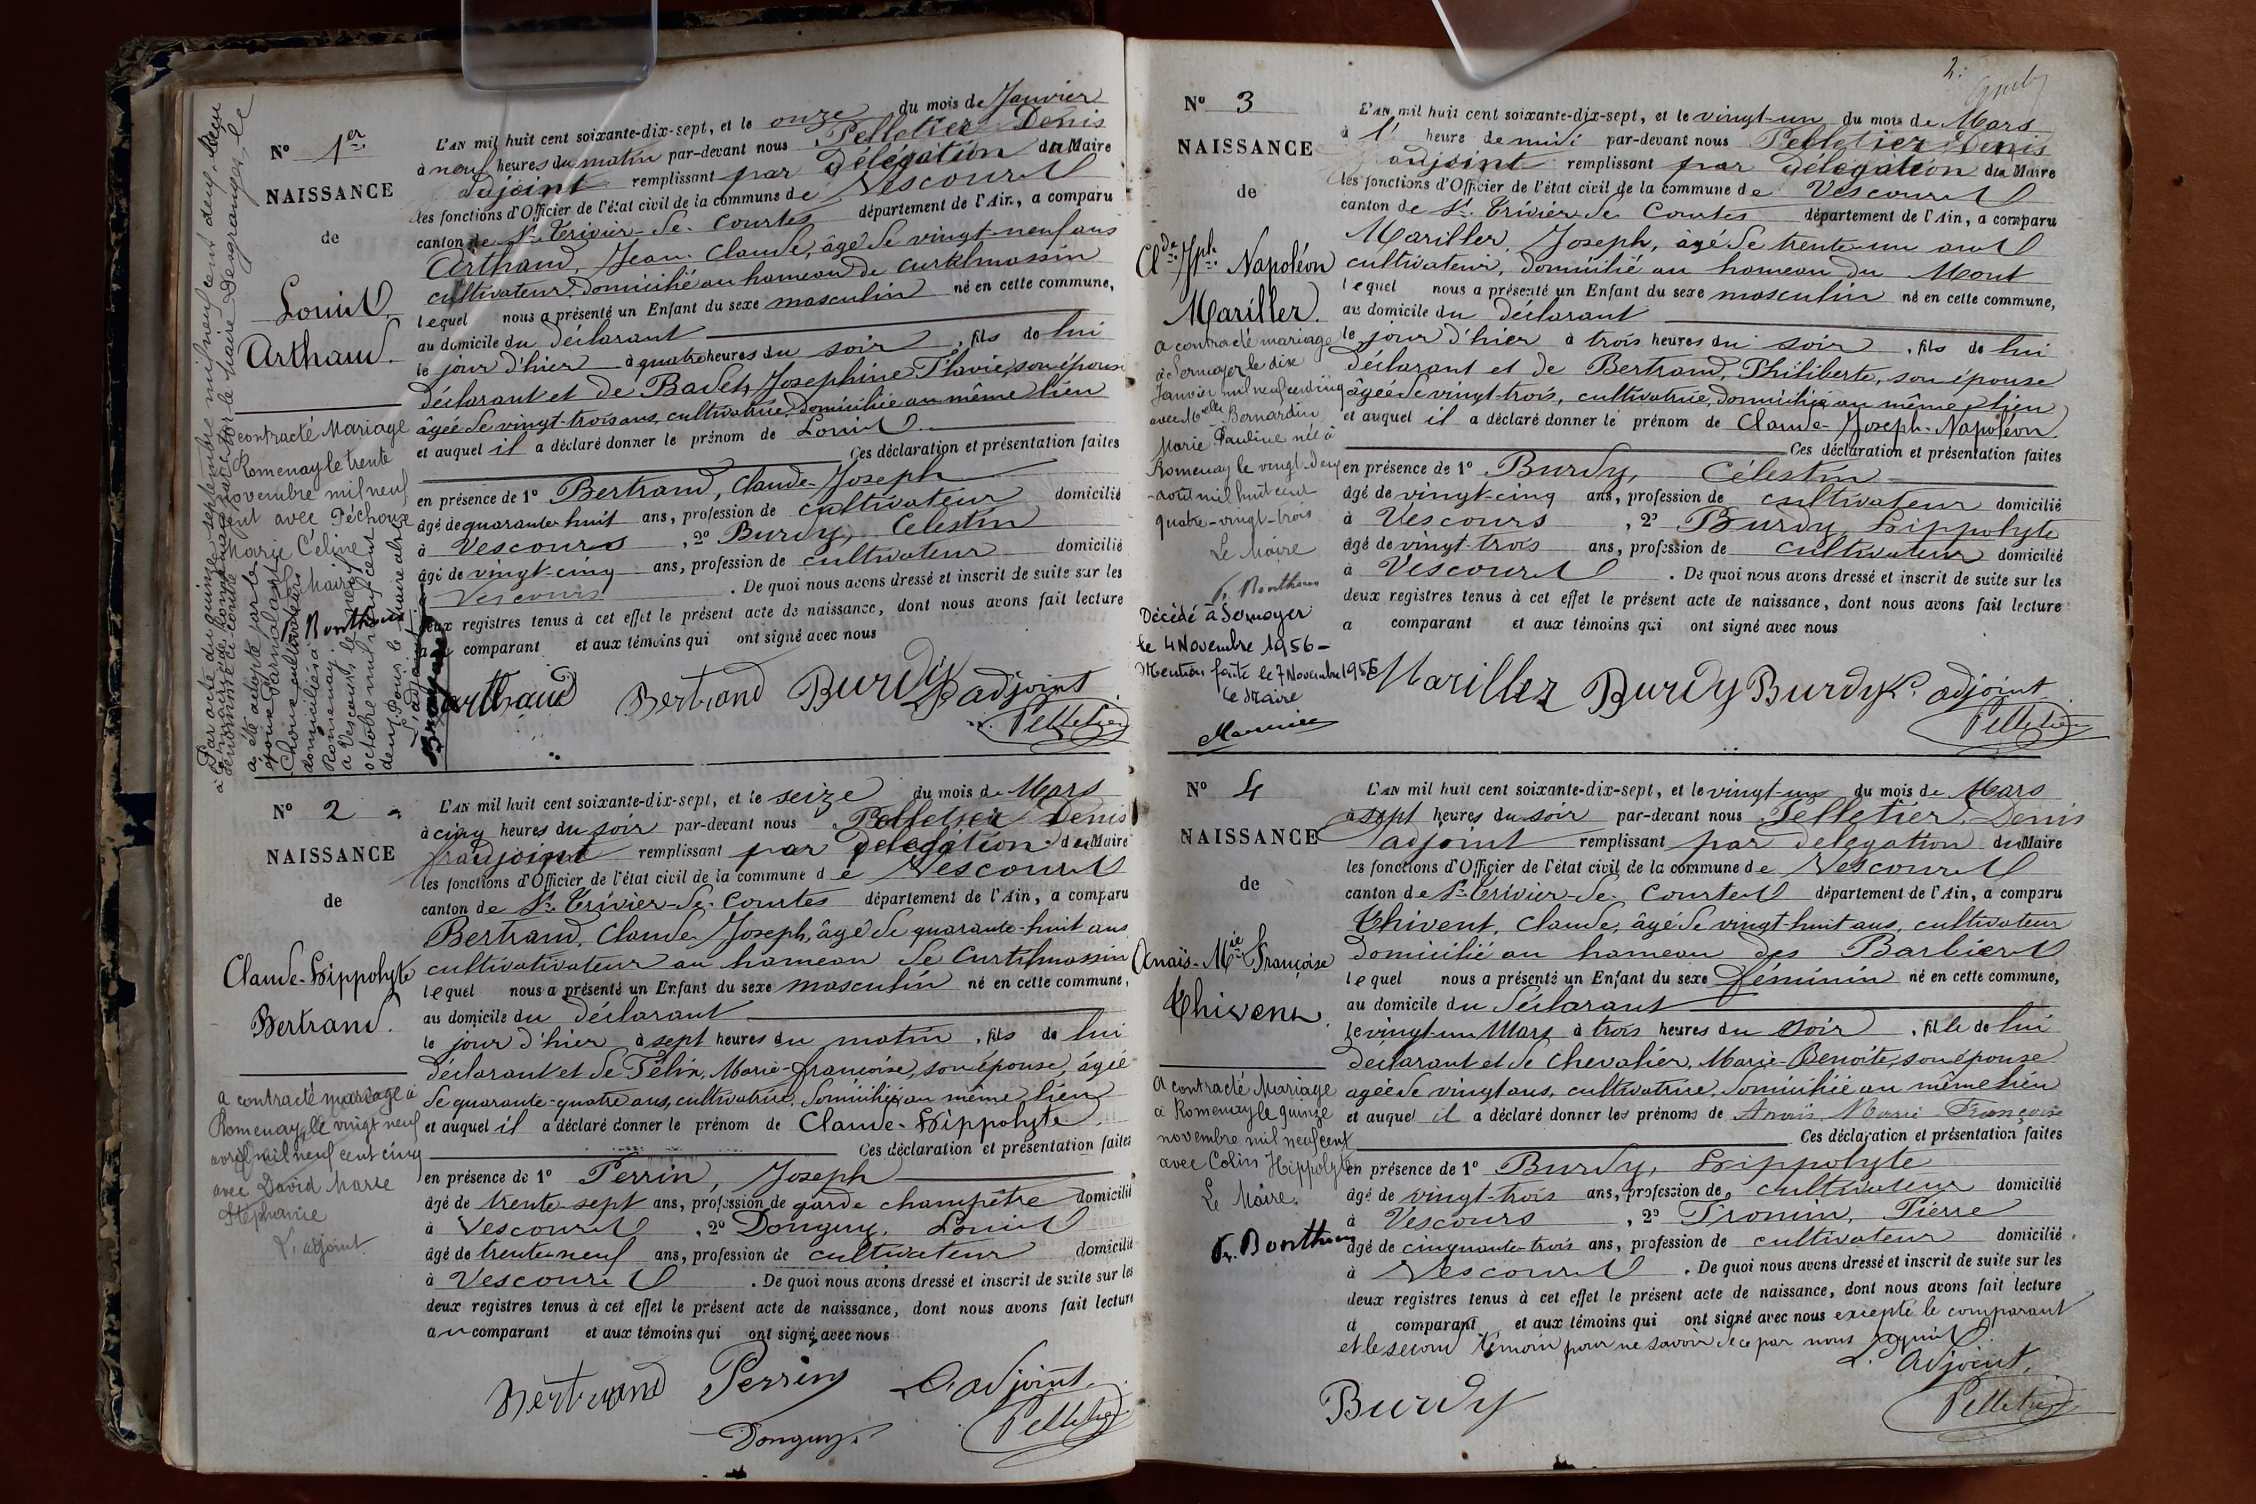 N° 1er
NAISSANCE
de
Louis
Arthaud.
a contracté Mariage
Romenay le trente
novembre mil neuf
cent avec Péchoux
Marie Céline
Maire
Bonthoux
L'AN mil huit cent soixante-dix-sept, et le onze du mois de Janvier
à neuf heures du matin par-devant nous Pelletier Denis
adjoint remplissant par délégation du Maire
les fonctions d'Officier de l'état civil de la commune de Vescours
canton de St Trivier-de-Courtes département de l'Ain, a comparu
Arthaud, Jean-Claude, âgé de vingt-neuf ans
cultivateur, domicilié au hameau de Curtilmassin
lequel nous a présenté un Enfant du sexe masculin né en cette commune,
au domicile du déclarant
le jour d'hier à quatre heures du soir, fils de lui
déclarant et de Badet, Josephine Flavie, son épouse
agée de vingt-trois ans, cultivatrice, domiciliée au même lieu
et auquel il a déclaré donner le prénom de Louis
Ces déclaration et présentation faites
en présence de 1° Bertrand, Claude-Joseph
âgé de quarante huit ans, profession de cultivateur domicilié
à Vescours, 2° Burdy, Celestin
âgé de vingt-cinq ans, profession de cultivateur domicilié
Vescours. De quoi nous avons dressé et inscrit de suite sur les
deux registres tenus à cet effet le présent acte de naissance, dont nous avons fait lecture
au comparant et aux témoins qui ont signé avec nous
arthaud Bertrand Burdy L'adjoint
Pelletier
N° 2
NAISSANCE
de
Claude-Hippolyte
Bertrand.
a contracté mariage à
Romenay, le vingt neuf
avril mil neuf cent cinq
avec David Marie
Stéphanie
L'adjoint
L'AN mil huit cent soixante-dix-sept, et le seize du mois de Mars
à cinq heures du soir par-devant nous Pelletier Denis
adjoint remplissant par délégation du Maire
les fonctions d'Officier de l'état civil de la commune de Vescours
canton de St Trivier-de-Courtes département de l'Ain, a comparu
Bertrand, Claude-Joseph, âgé de quarante-huit ans
cultivativateur au hameau de Curtilmassin
lequel nous a présenté un Enfant du sexe masculin né en cette commune,
au domicile du déclarant
le jour d'hier à sept heures du matin, fils de lui
déclarant et de Félix, Marie-françoise, son épouse, âgée
de quarante-quatre ans, cultivatrice, domiciliée au même lieu
et auquel il a déclaré donner le prénom de Claude-Hippolyte
Ces déclaration et présentation faites
en présence de 1° Perrin, Joseph
âgé de trente-sept ans, profession de garde champêtre domicilié
à Vescours, 2° Donguy, Louis
âgé de trente-neuf ans, profession de cultivateur domicilié
à Vescours. De quoi nous avons dressé et inscrit de suite sur les
deux registres tenus à cet effet le présent acte de naissance, dont nous avons fait lecture
au comparant et aux témoins qui ont signé avec nous
Bertrand Perrin L'adjoint.
Donguy Pelletier
2.
N° 3
NAISSANCE
de
Cl.de Jph Napoléon
Mariller.
a contracté mariage
à Sermoyer le dix
Janvier mil neuf cent cinq
avec Melle Bernardin
Marie Pauline née à
Romenay le vingt-deux
août mil huit cent
quatre-vingt-trois
Le Maire
F. Bonthoux
Décédé à Sermoyer
le 4 Novembre 1956 -
Mention faite le 7 Novembre 1956
Le Maire
L'AN mil huit cent soixante-dix-sept, et le vingt-un du mois de Mars
à l' heure de midi par-devant nous Pelletier Denis
adjoint remplissant par délégation du Maire
les fonctions d'Officier de l'état civil de la commune de Vescours
canton de St Trivier-de-Courtes département de l'Ain, a comparu
Mariller, Joseph, âgé de trente-un ans
cultivateur, domicilié au hameau du Mont
lequel nous a présenté un Enfant du sexe masculin né en cette commune,
au domicile du déclarant
le jour d'hier à trois heures du soir, fils de lui
déclarant et de Bertrand, Philiberte, son épouse
âgée de vingt-trois, cultivatrice, domiciliée au même lieu
et auquel il a déclaré donner le prénom de Claude-Joseph-Napoléon
Ces déclaration et présentation faites
en présence de 1° Burdy, Célestin
âgé de vingt-cinq ans, profession de cultivateur domicilié
à Vescours, 2° Burdy Hippolyte
âgé de vingt-trois ans, profession de cultivateur domicilié
à Vescours. De quoi nous avons dressé et inscrit de suite sur les
deux registres tenus à cet effet le présent acte de naissance, dont nous avons fait lecture
a comparant et aux témoins qui ont signé avec nous
Mariller Burdy Burdy L'adjoint
Pelletier
N° 4
NAISSANCE
de
Anaïs-Mie Françoise
Thivent.
a contracté Mariage
à Romenay le quinze
novembre mil neuf cent
avec Colin Hippolyte
Le Maire.
F. Bonthoux
L'AN mil huit cent soixante-dix-sept, et le vingt-un du mois de Mars
à sept heures du soir par-devant nous Pelletier Denis
adjoint remplissant par délégation du Maire
les fonctions d'Officier de l'état civil de la commune de Vescours
canton de St Trivier-de-Courtes département de l'Ain, a comparu
Thivent, Claude, âgé de vingt-huit ans, cultivateur
domicilié au hameau des Barbiers
lequel nous a présenté un Enfant du sexe féminin né en cette commune,
au domicile du déclarant
le vingt-un Mars à trois heures du soir, fille de lui
déclarant et de Chevalier, Marie-Benoite, son épouse
agée de vingt ans, cultivatrice, domiciliée au même lieu
et auquel il a déclaré donner les prénoms de Anaïs Marie Françoise
Ces déclaration et présentation faites
en présence de 1° Burdy, Hippolyte
âgé de vingt-trois ans, profession de cultivateur domicilié
à Vescours, 2° Pronin, Pierre
âgé de cinquante-trois ans, profession de cultivateur domicilié
à Vescours. De quoi nous avons dressé et inscrit de suite sur les
deux registres tenus à cet effet le présent acte de naissance, dont nous avons fait lecture
a comparant et aux témoins qui ont signé avec nous excepté le comparant
et le second témoin pour ne savoir de ce par nous requis
L'adjoint,
Burdy Pelletier